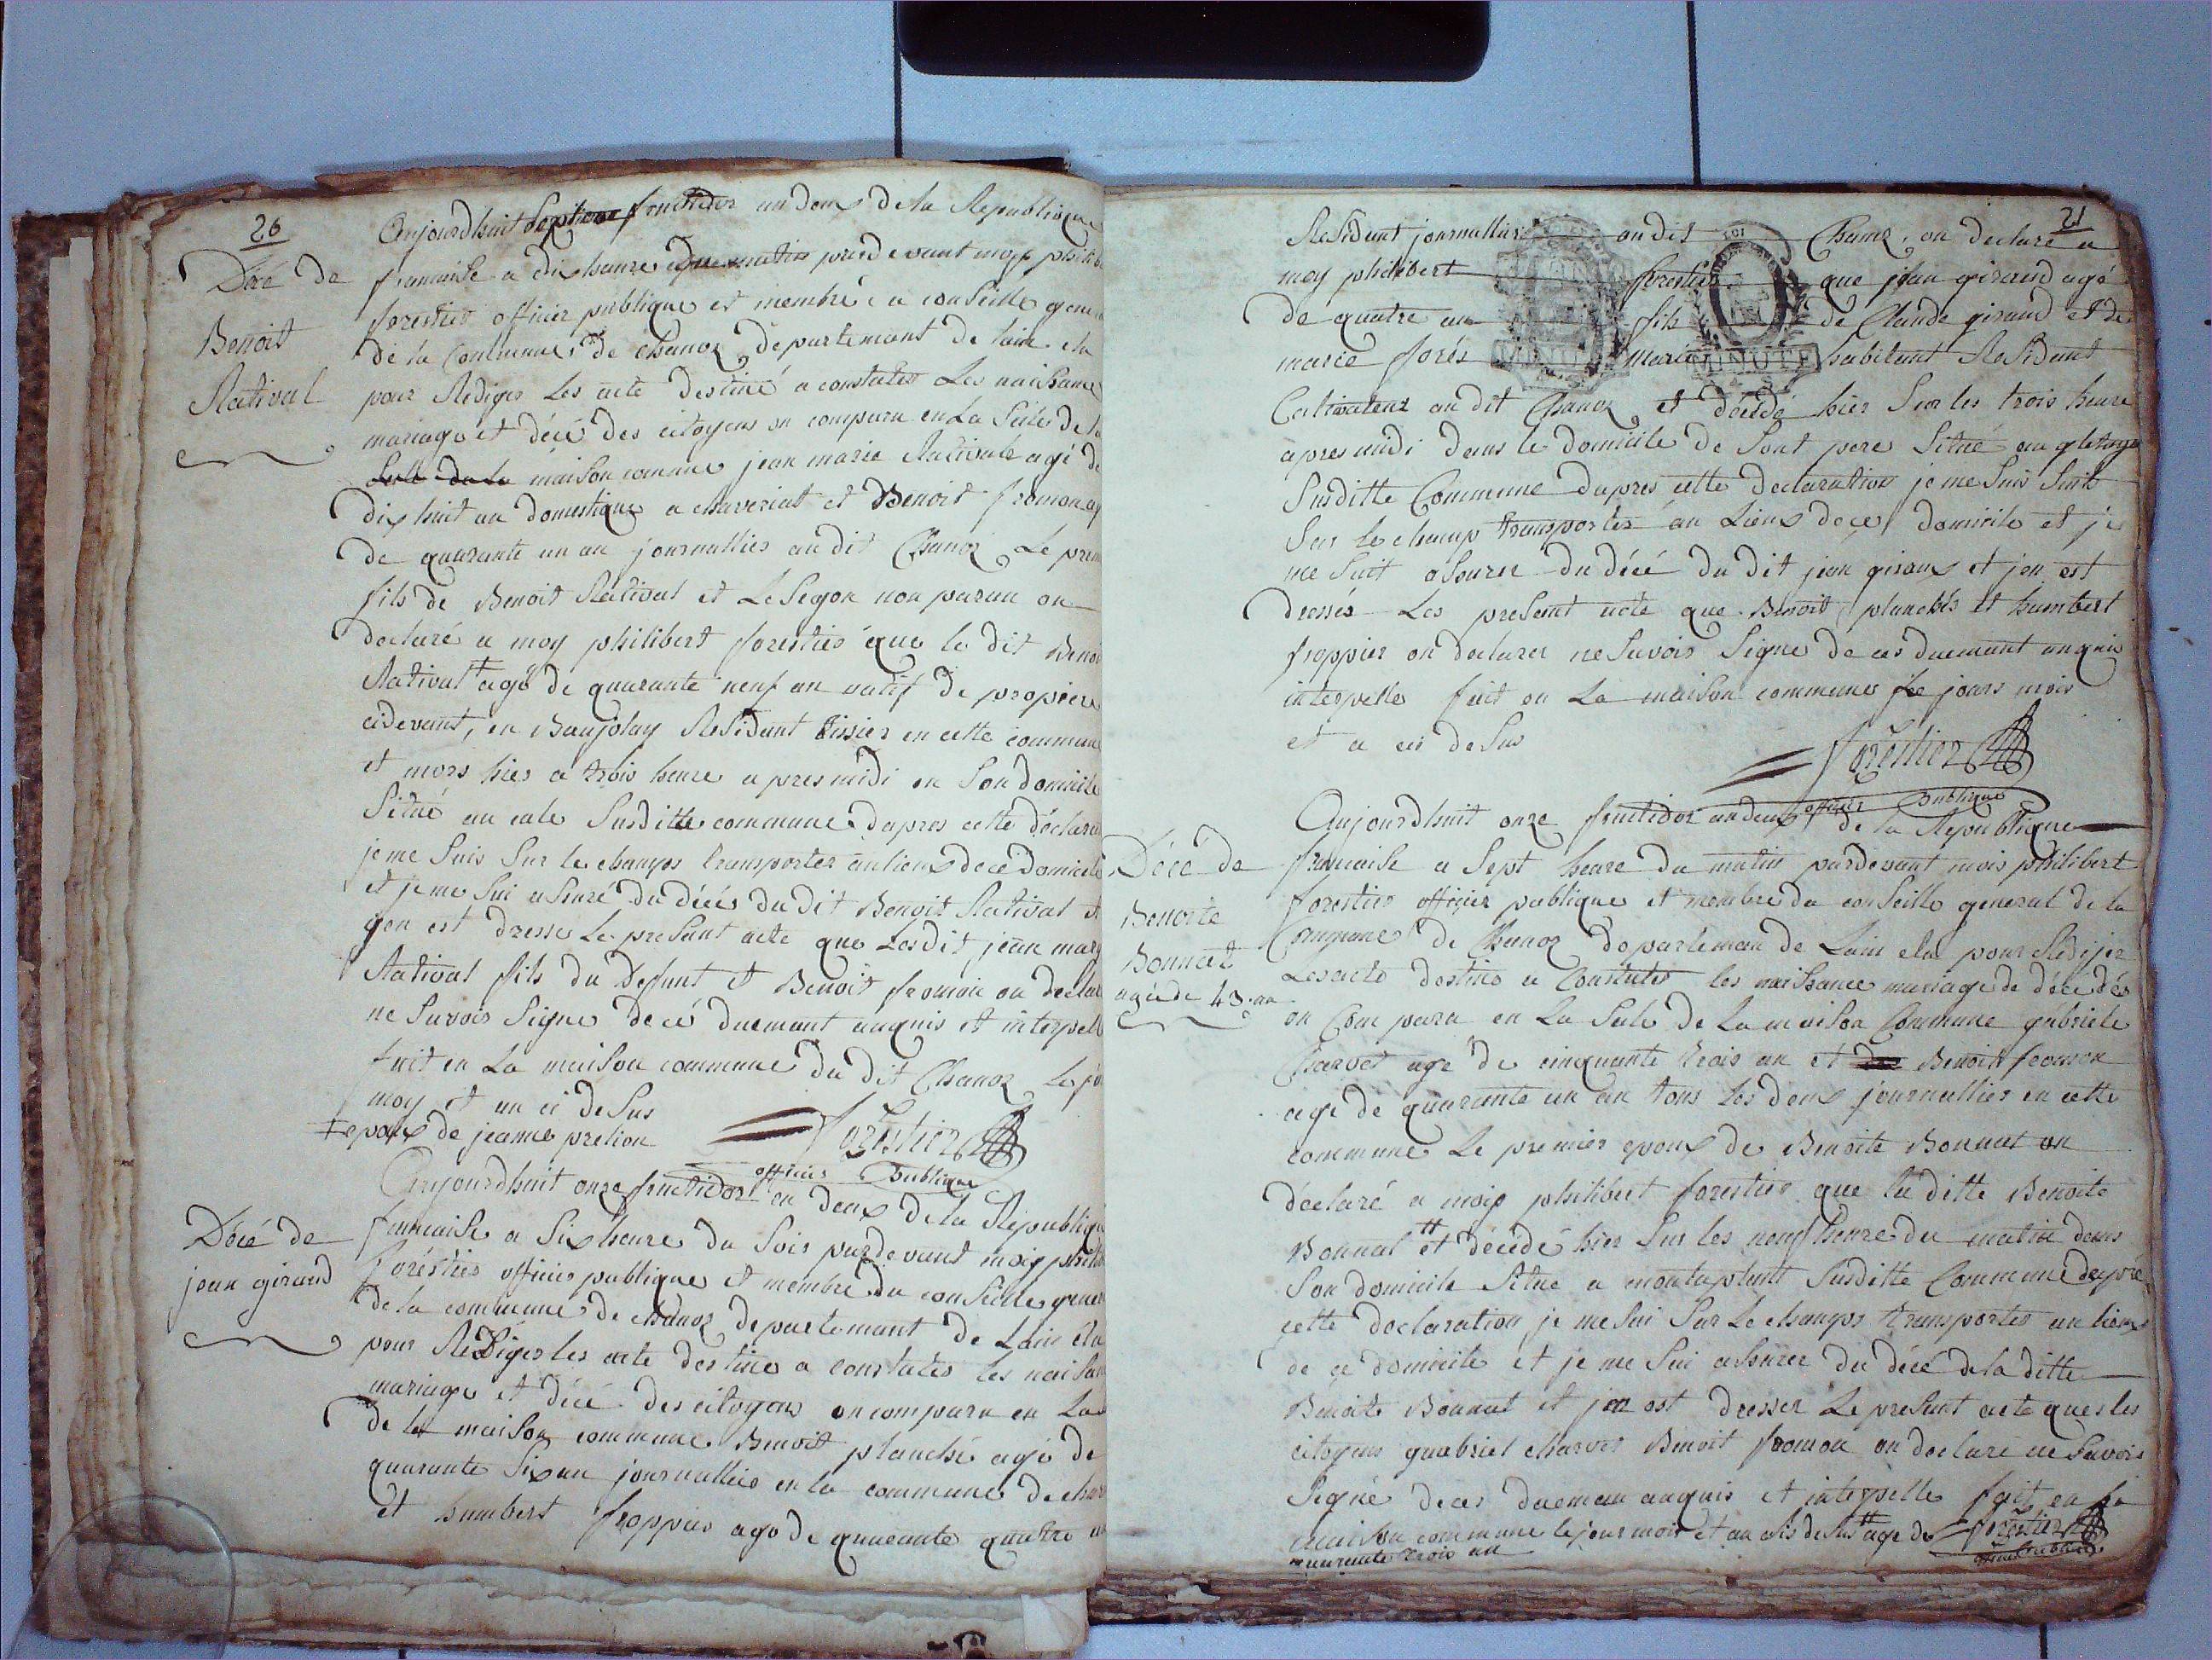 20
Décé de
Benoit
Rativat
Aujourdhuit Septieme fructidor an deux de la Republique
francaise a dix heure du matin pardevant moy philib
forestier officier publique et membre du conseille gene
de la Commune de Chanoz département de lain elu
pour Rediger Les acte destiné a constater Les naissance
mariage et décé des citoyens on comparu en La Sale de la
Salle de la maison commune jean marie Rativat agé de
dix huit an domestique a chaveriat et Benoit fromon ag
de quarante un an journallier au dit Chanoz Le prem
fils de Benoit Rativat et Le Segon non paran on
declaré a moy philibert forestier que le dit Benoi
Rativat + agé de quarante neuf an natif de propiere
cidevant, en Baujolay Residant tissier en cette commune
et mors hier a trois heure apres midi en Son domicile
Situé au cale Susditte commune dapres cette declara
je me Suis Sur le champs transporter au lieux de ce domicile
et je me Sui assuré du décés du dit Benoit Rativat et
gen est dresse Le presant acte que Lesdit jean mary
Rativat fils du defunt et Benoit fromon on declar
ne Savoir Signe de cé duemant anquis et interpell
fait en La maison commune du dit Chanoz Le jo
moy et an ci desus
+ epoux de jeanne prelion
Forestier
officier Publique
Décé de
jean giraud
Aujourdhuit onze fructidor an deux de la Republique
francaise a Six heure du Soir pardevant moy philib
Foréstier officier publique et membre du conseille gener
de la commune de Chanoz departemant de Lain elu
pour Rediger les acte destine a constater les naissan
mariage et décé des citoyens on comparu en La
de la maison commune Benoit planché agé de
quarante Six an journallier en la commune de chan
et humbert froppier age de quarante quatre an
21
Residant journallier au dit Chanoz on declaré a
moy philibert forestier que jean giraud agé
de quatre an fils de Claude giraud et de
marie forés mariez habitant Residant
Cultivateur au dit Chanoz et décédé hier Sur les trois heure
apres midi dans le domicile de Sont pere Situé au
Susditte Commune dapres cette declaration je me Suis Suit
Sur le champ transporter au Lieux de ce domicile et je
me Suit assurer du décé du dit jean giraux et jen est
dressés Les presant acte que Benoit planchés et humbert
froppier on declarer ne Savoir Signe de ces duemant anquis
interpelle fait en La maison commune Le jours mois
et a ci desus
Forestier
officier Publique
Décé de
Benoite
Bonnat
agé de 43 an
Aujourdhuit onze fructidor an deux de la Republique
francaise a Sept heure du matin pardevant mois philibert
forestier officier publique et membre du conseille general de la
Commune de Chanoz departeman de Lain elu pour Redijer
Les acte destine a Constater les naissance mariage de décédés
on Comparu en La Sale de La maison Commune gabriele
Charvet age de cinquante trois an et Benoit fromon
age de quarante un an tous les deux journallier en cette
commune Le premier epoux de Benoite Bonnat on
déclaré a moiy philibert forestier que la ditte Benoite
Bonnat ++ et décédé hier Sur les neuf heure du matin dans
Son domicile Situe a montaplant Susditte Commune dapré
cette declaration je me Sui Sur Le champs transporter au lieux
de ce domicile et je me Sui assurer du décé de la ditte
Benoite Bonnat et jen est dresser Le presant acte que les
citoyens guabriel charvet Benoit fromon on declaré ne Savoir
Signé de ces dueman anquis et interpelle fait en La
maison commune le jour mois et an cis desus ++ age de
quarante trois an
Forestier
officier publique